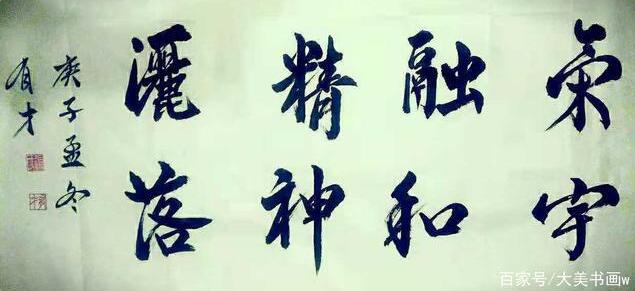 氣宇
融和
精神
灑落
庚子孟冬
有才
百家号/大美书画w